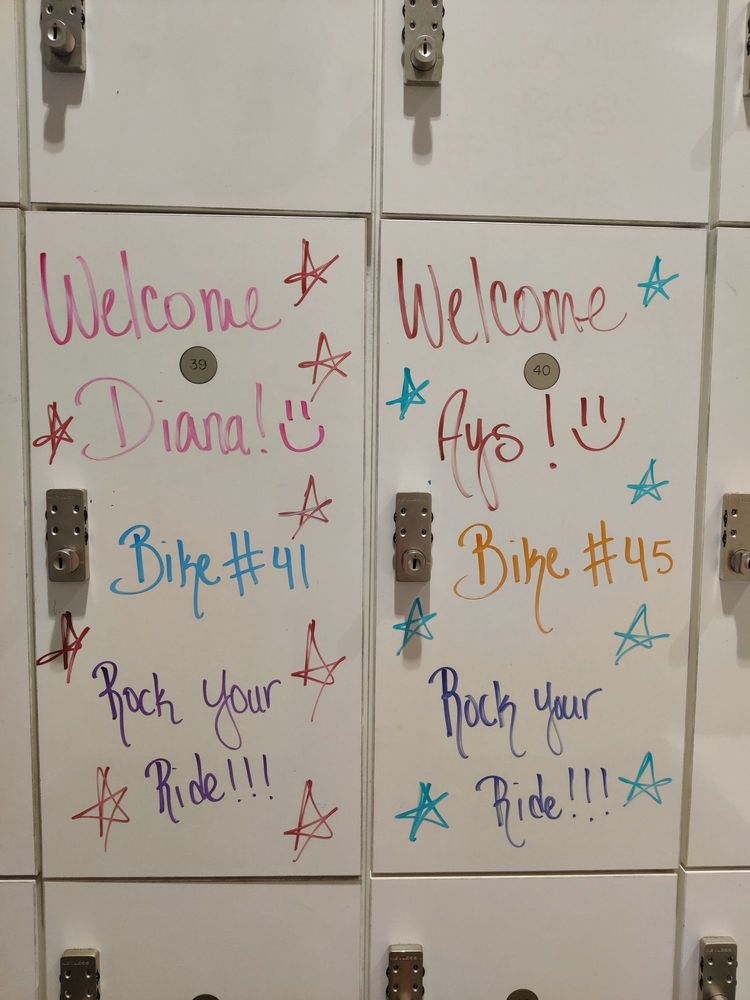 Welcome
39
Diana!
Bike #41
Rock Your
Ride!!!
Welcome
40
Ays!
Bike #45
Rock Your
Ride!!!